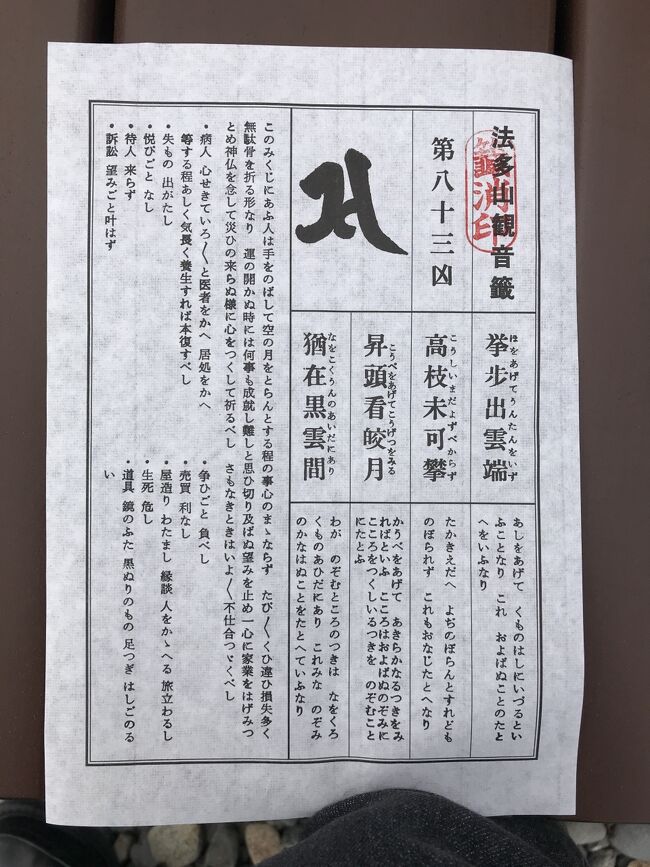 法多山観音籤
消印
第八十三凶
挙歩出雲端
ほをあげてうんたんをいず
高枝未可攀
こうしいまだよずべからず
昇頭看皎月
こうべをあげてこうげつをみる
猶在黒雲間
なをこくうんのあいだにあり
あしをあげて くものはしにいづるとい
ふことなり これ およばぬことのたと
へをいふなり
たかきえだへ よぢのぼらんとすれども
のぼられず これもおなじたとへなり
かうべをあげて あきらかなるつきをみ
ればといふ こころはおよばぬのぞみに
こころをつくしいるつきを のぞむこと
にたとふ
わが のぞむところのつきは なをくろ
くものあひだにあり これみな のぞみ
のかなはぬことをたとへていふなり
このみくじにあふ人は手をのばして空の月をとらんとする程の事心のまゝならず たび〳〵くひ違ひ損失多く
無駄骨を折る形なり 運の開かぬ時には何事も成就し難しと思ひ切り及ばぬ望みを止め一心に家業をはげみつ
とめ神仏を念して災ひの来らぬ様に心をつくして祈るべし さもなきときはいよ〳〵不仕合つゞくべし
・病人 心せきていろ〳〵と医者をかへ 居処をかへ
等する程あしく気長く養生すれば本復すべし
・失もの 出がたし
・悦びごと なし
・待人 来らず
・訴訟 望みごと叶はず
・争ひごと 負べし
・売買 利なし
・屋造り わたまし 縁談 人をかゝへる 旅立わるし
・生死 危し
・道具 鏡のふた 黒ぬりのもの 足つぎ はしごのる
い